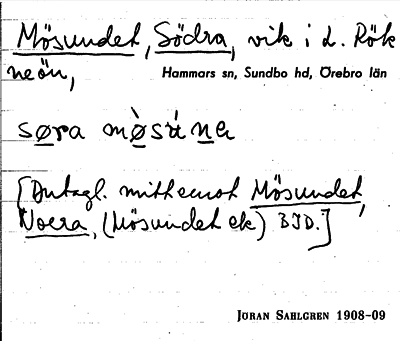 Mösundet, Södra, vik i L. Rök
neön,
Hammars sn, Sundbo hd, Örebro län
søra mø̀súna
[Antagl. mitt emot Mösundet,
Norra, (Mösundet ek) BJD.]
JÖRAN SAHLGREN 1908-09